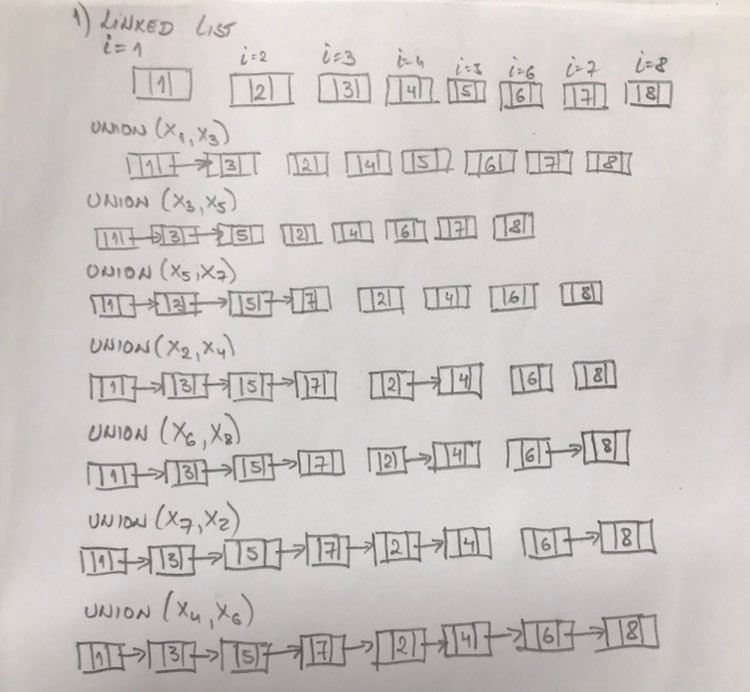 1) LINKED LIST
i=1 i=2 i=3 i=4 i=5 i=6 i=7 i=8
|1| |2| |3| |4| |5| |6| |7| |8|
UNION (X1, X3)
|1| → |3| |2| |4| |5| |6| |7| |8|
UNION (X3, X5)
|1| → |3| → |5| |2| |4| |6| |7| |8|
UNION (X5, X7)
|1| → |3| → |5| → |7| |2| |4| |6| |8|
UNION (X2, X4)
|1| → |3| → |5| → |7| |2| → |4| |6| |8|
UNION (X6, X8)
|1| → |3| → |5| → |7| |2| → |4| |6| → |8|
UNION (X7, X2)
|1| → |3| → |5| → |7| → |2| → |4| |6| → |8|
UNION (X4, X6)
|1| → |3| → |5| → |7| → |2| → |4| → |6| → |8|